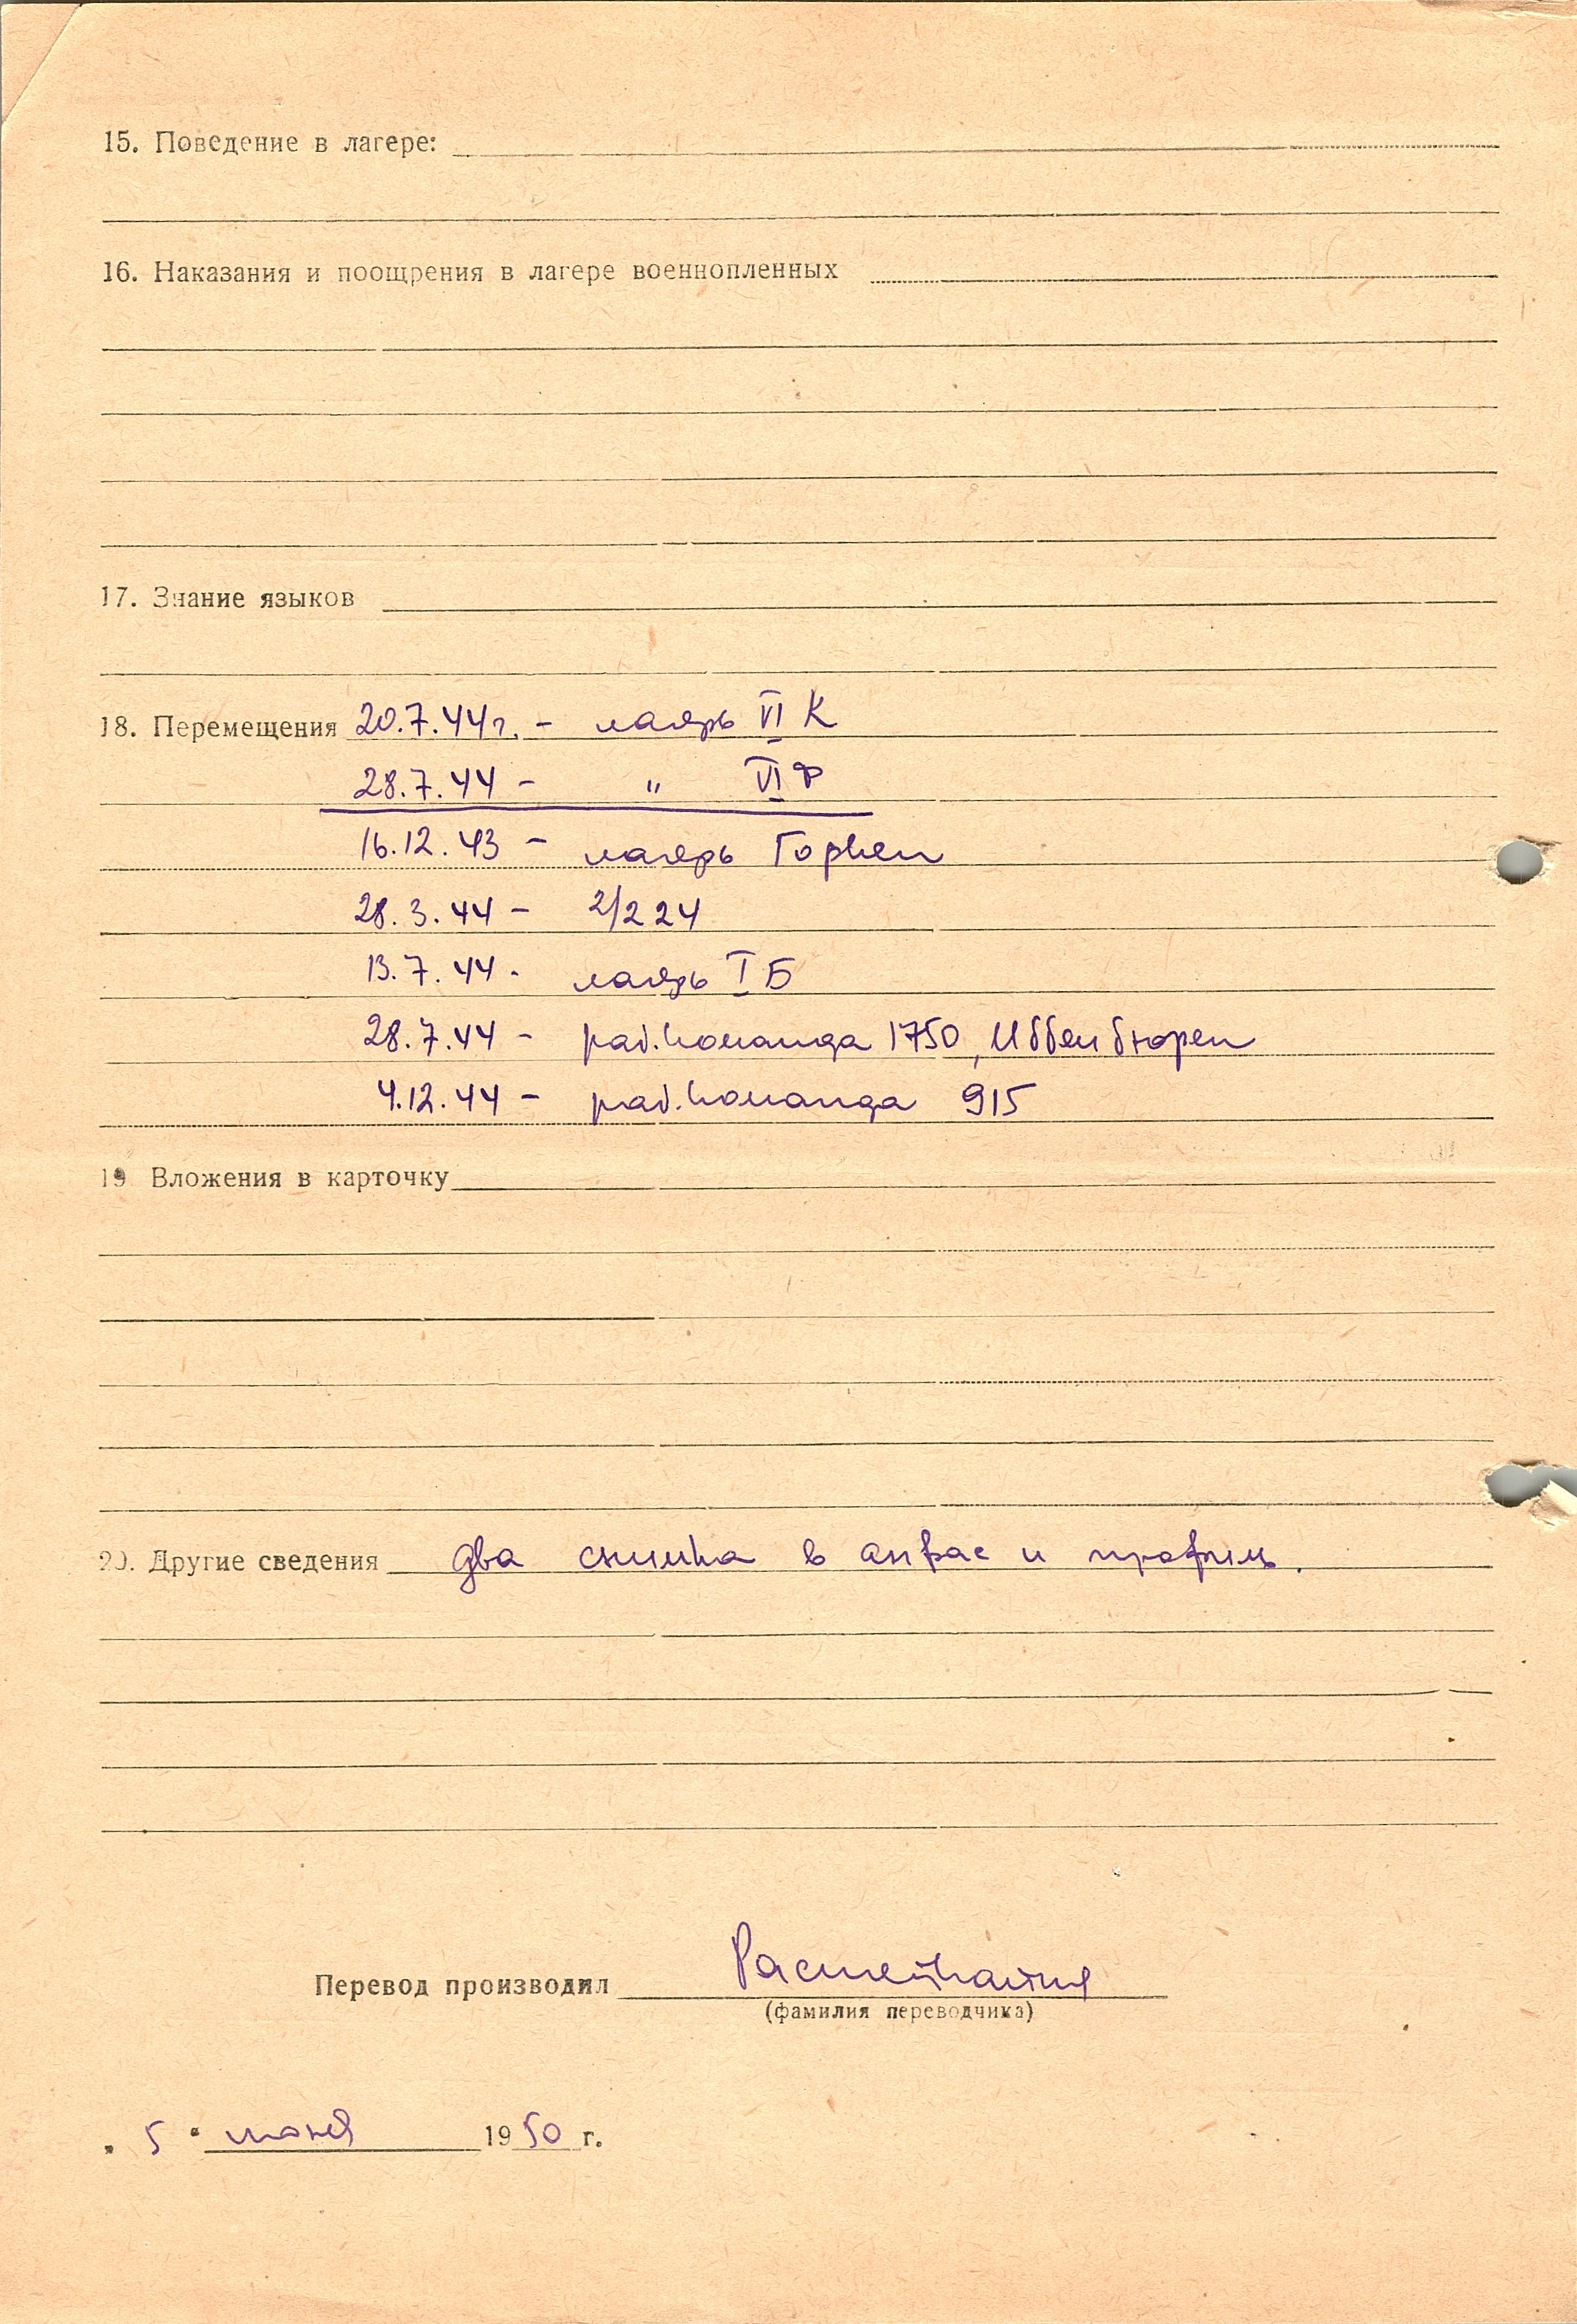 15. Поведение в лагере:
16. Наказания и поощрения в лагере военнопленных
17. Знание языков
18. Перемещения 20.7.44г. - лагерь VI К
28.7.44 - " VI Ф
16.12.43 - лагерь
28.3.44 - 2/224
13.7.44 - лагерь I Б
28.7.44 - раб. команда 1750, Иббенбюрен
4.12.44 - раб. команда 915
19 Вложения в карточку
20. Другие сведения два снимка в анфас и профиль.
Перевод производил
(фамилия переводчика)
„ 5 “ июня 1950 г.